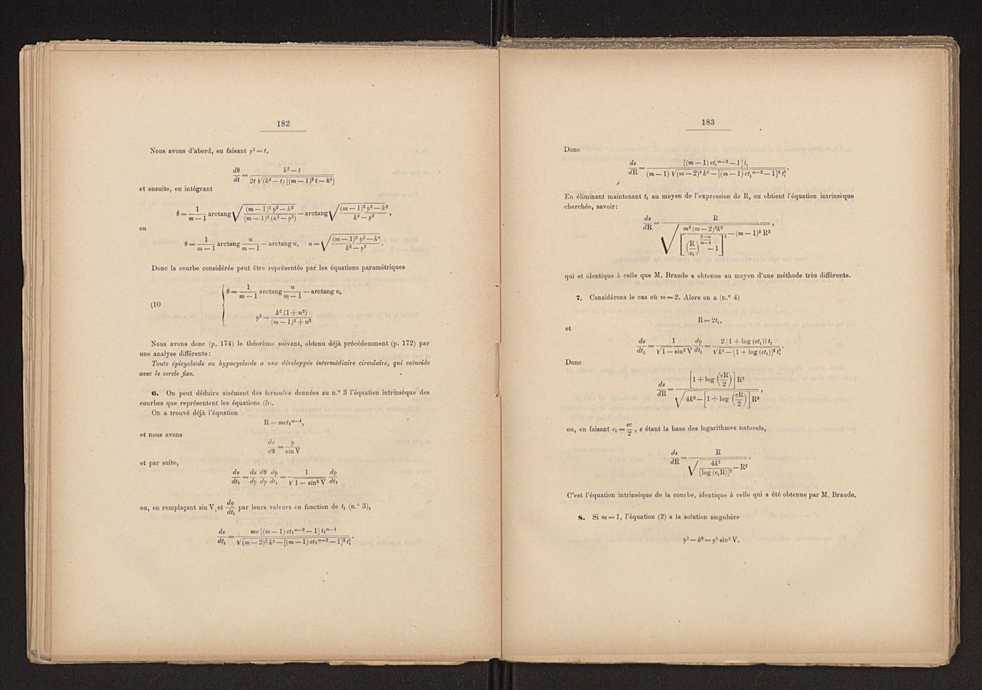 182
Nous avons d'abord, en faisant y² = t,
dθ/dt = (h² − t) / (2t √((h² − t) [(m − 1)² t − h²]))
et ensuite, en intégrant
θ = 1/(m − 1) arctang √(((m − 1)² y² − h²) / ((m − 1)² (h² − y²))) − arctang √(((m − 1)² y² − h²) / (h² − y²)),
ou
θ = 1/(m − 1) arctang u/(m − 1) − arctang u, u = √(((m − 1)² y² − h²) / (h² − y²)).
Donc la courbe considérée peut être représentée par les équations paramétriques
(10 { θ = 1/(m − 1) arctang u/(m − 1) − arctang u,
y² = h² (1 + u²) / ((m − 1)² + u²)
Nous avons donc (p. 174) le théorème suivant, obtenu déjà précédemment (p. 172) par
une analyse différente:
Toute épicycloïde ou hypocycloïde a une développée intermédiaire circulaire, qui coïncide
avec le cercle fixe.
6. On peut déduire aisément des formules données au n.º 3 l'équation intrinsèque des
courbes que représentent les équations
On a trouvé déjà l'équation
R = mct₁ᵐ⁻¹,
et nous avons
ds/dθ = y/sin V
et par suite,
ds/dt₁ = ds/dy dθ/dy dy/dt₁ = 1/√(1 − sin² V) dy/dt₁
ou, en remplaçant sin V et dy/dt₁ par leurs valeurs en fonction de t₁ (n.º 3),
ds/dt₁ = mc [(m − 1) ct₁ᵐ⁻² − 1] t₁ᵐ⁻¹ / √((m − 2)² k² − [(m − 1) ct₁ᵐ⁻² − 1]² t₁²).
183
Donc
ds/dR = [(m − 1) ct₁ᵐ⁻² − 1] t₁ / ((m − 1) √((m − 2)² k² − [(m − 1) ct₁ᵐ⁻² − 1]² t₁²)).
En éliminant maintenant t₁ au moyen de l'expression de R, on obtient l'équation intrinsèque
cherchée, savoir:
ds/dR = R / √(m² (m − 2)² k² / [(R/c₁)^((2−m)/(m−1)) − 1]² − (m − 1)² R²),
qui est identique à celle que M. Braude a obtenue au moyen d'une méthode très différente.
7. Considérons le cas où m = 2. Alors on a (n.º 4)
R = 2t₁,
et
ds/dt₁ = 1/√(1 − sin² V) dy/dt₁ = 2 [1 + log (ct₁)] t₁ / √(k² − [1 + log (ct₁)]² t₁²).
Donc
ds/dR = [1 + log (cR/2)] R² / √(4k² − [1 + log (cR/2)] R²),
ou, en faisant c₁ = ec/2, e étant la base des logarithmes naturels,
ds/dR = R / √(4k² / [log (c₁R)]² − R²).
C'est l'équation intrinsèque de la courbe, identique à celle qui a été obtenue par M. Braude.
8. Si m = 1, l'équation (2) a la solution singulière
y² − h² = y² sin² V.